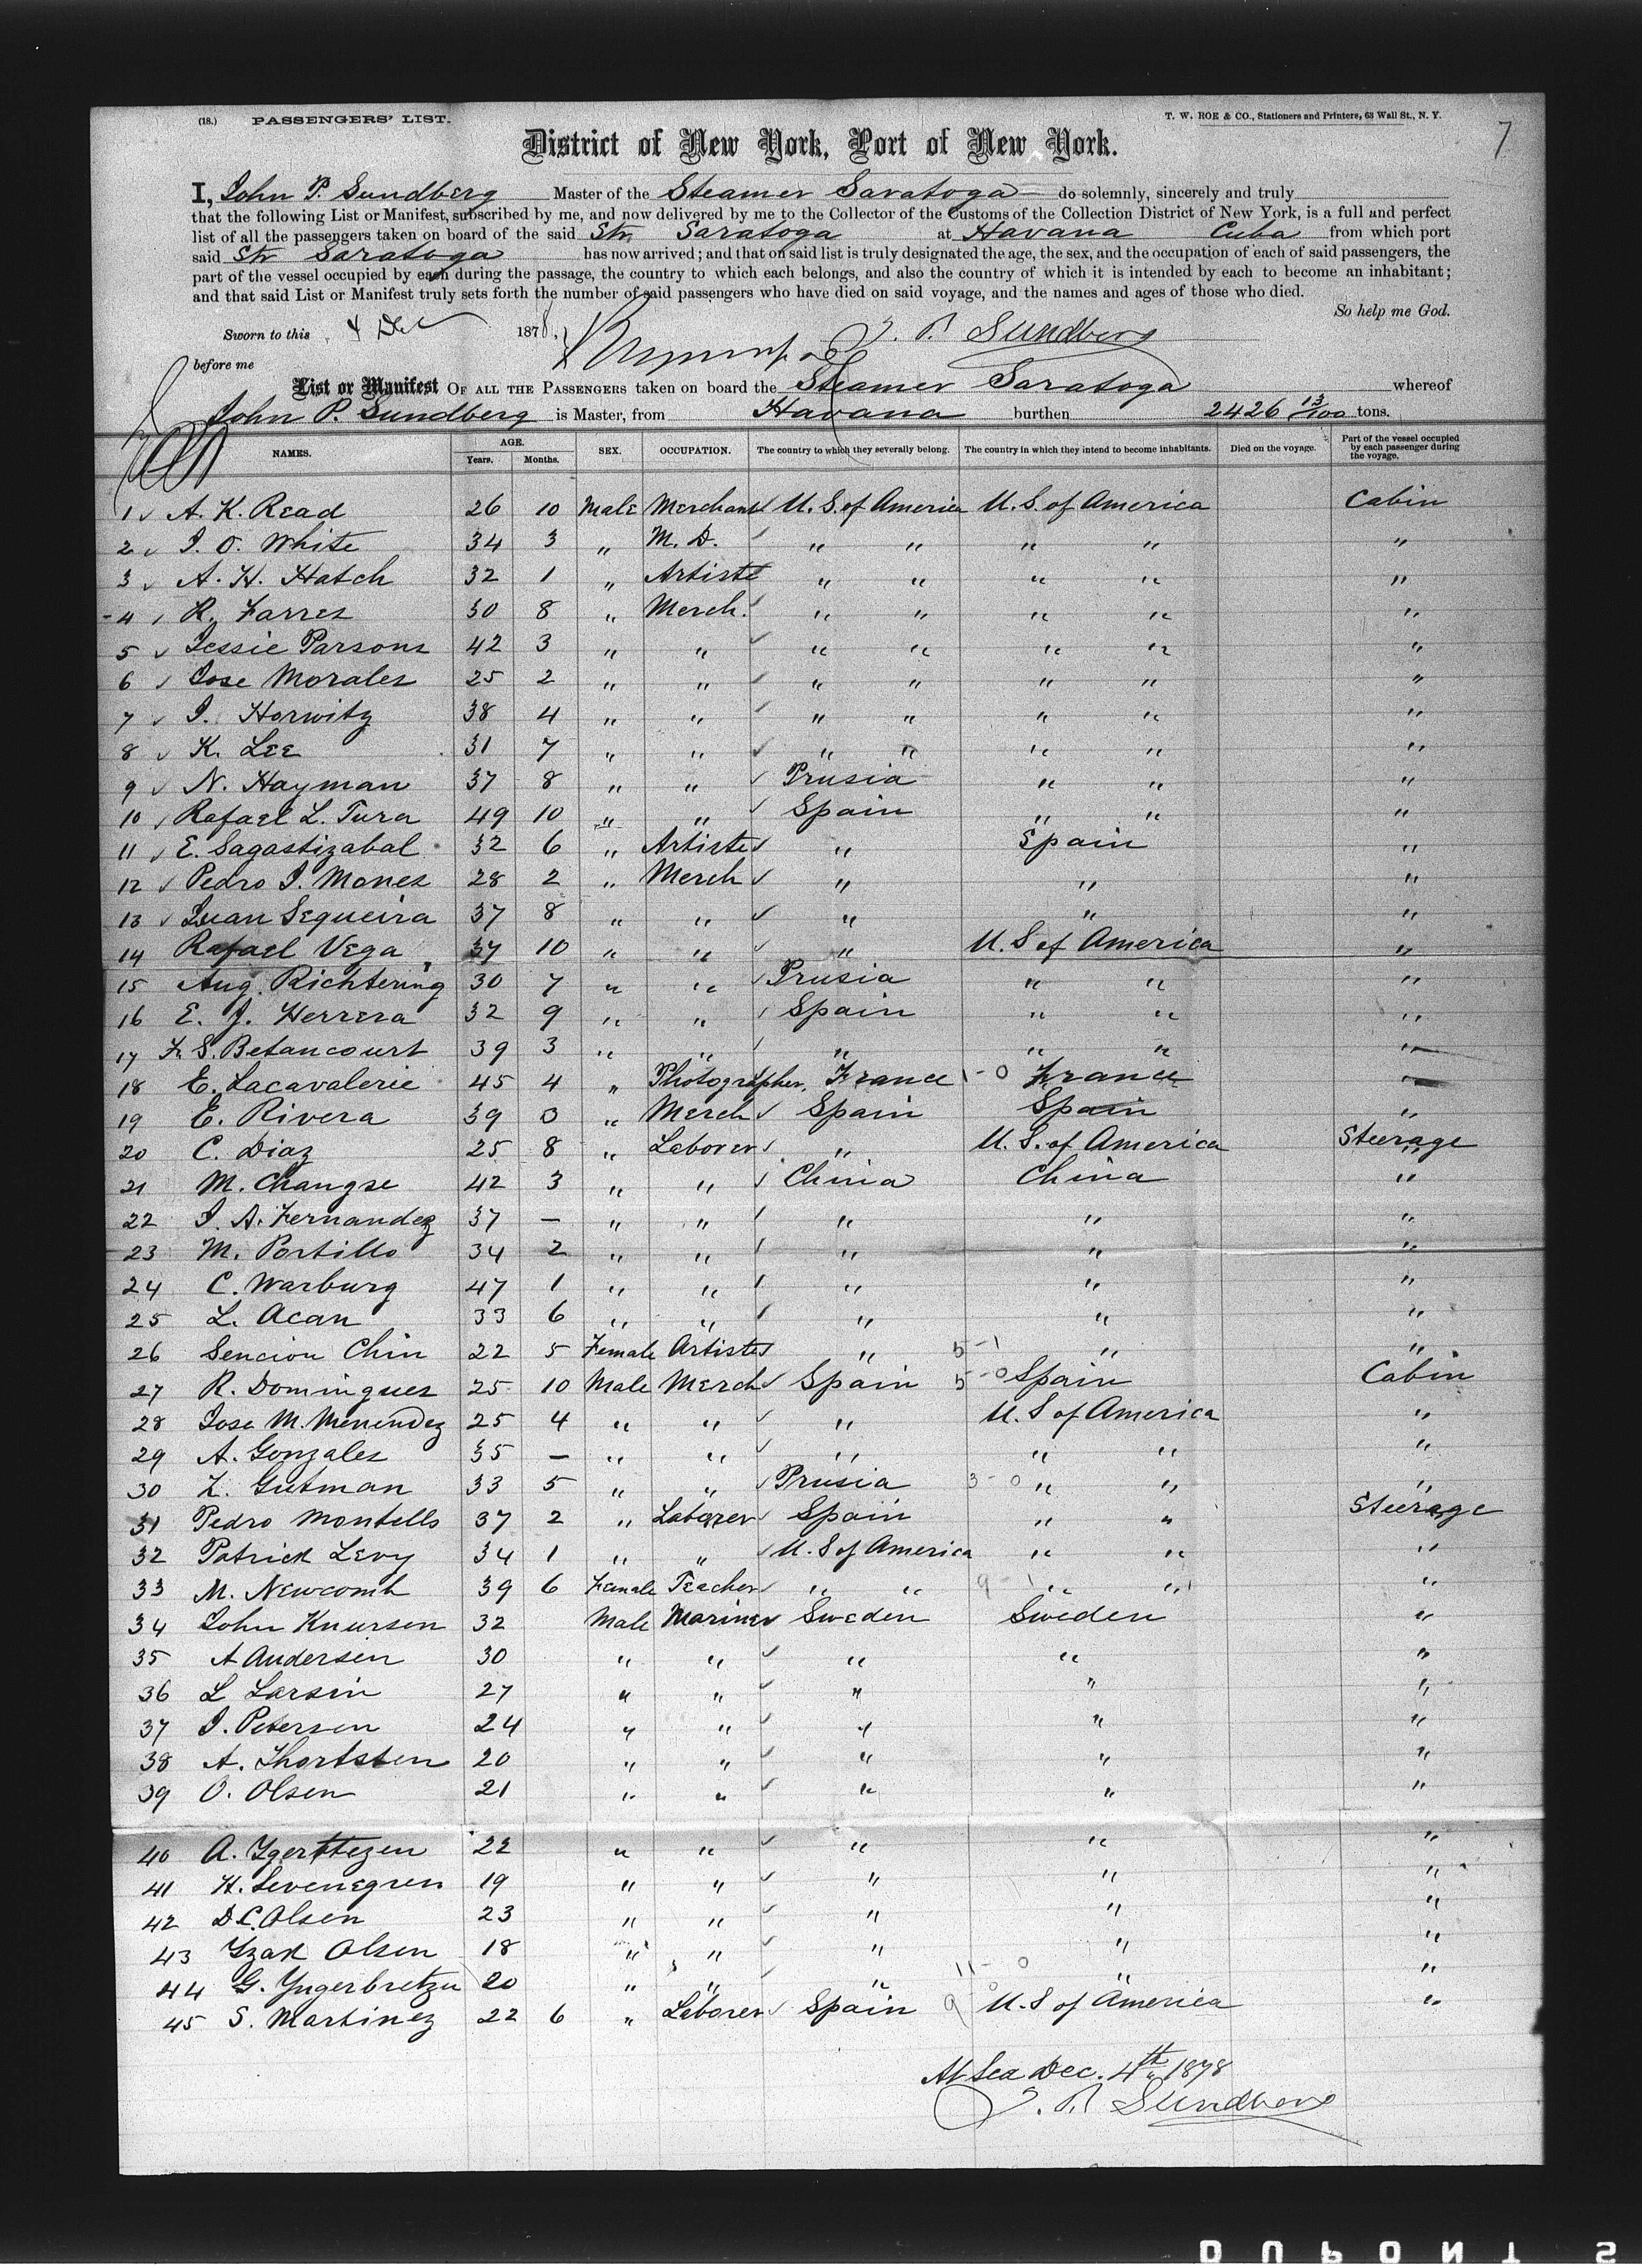 (18.) PASSENGERS' LIST. T. W. ROE & CO., Stationers and Printers, 63 Wall St., N. Y. 7
District of New York, Port of New York.
I, John P. Sundberg Master of the Steamer Saratoga do solemnly, sincerely and truly
that the following List or Manifest, subscribed by me, and now delivered by me to the Collector of the Customs of the Collection District of New York, is a full and perfect
list of all the passengers taken on board of the said Str Saratoga at Havana Cuba from which port
said Str Saratoga has now arrived; and that on said list is truly designated the age, the sex, and the occupation of each of said passengers, the
part of the vessel occupied by each during the passage, the country to which each belongs, and also the country of which it is intended by each to become an inhabitant;
and that said List or Manifest truly sets forth the number of said passengers who have died on said voyage, and the names and ages of those who died.
So help me God.
Sworn to this 4 Dec 1878, J. P. Sundberg
before me
List or Manifest OF ALL THE PASSENGERS taken on board the Steamer Saratoga whereof
John P. Sundberg is Master, from Havana burthen 2426 13/100 tons.
NAMES. AGE. Years. Months. SEX. OCCUPATION. The country to which they severally belong. The country in which they intend to become inhabitants. Died on the voyage. Part of the vessel occupied by each passenger during the voyage.
1 A. K. Read 26 10 Male Merchant U. S. of America U. S. of America Cabin
2 J. O. White 34 3 " M. D. " " " " "
3 A. H. Hatch 32 1 " Artiste " " " " "
4 R. Farres 30 8 " Merch. " " " " "
5 Jessie Parsons 42 3 " " " " " " "
6 Jose Morales 25 2 " " " " " " "
7 J. Horwitz 38 4 " " " " " " "
8 K. Lee 31 7 " " " " " " "
9 N. Hayman 37 8 " " Prusia " " "
10 Rafael L. Tura 49 10 " " Spain " " "
11 E. Sagastizabal 32 6 " Artiste " Spain "
12 Pedro J. Mones 28 2 " Merch " " "
13 Juan Sequeira 37 8 " " " " "
14 Rafael Vega 37 10 " " " U. S of America "
15 Aug. Richtering 30 7 " " Prusia " " "
16 E. J. Herrera 32 9 " " Spain " " "
17 F. S. Betancourt 39 3 " " " " " "
18 E. Lacavalerie 45 4 " Photographer France 1-0 France "
19 E. Rivera 39 0 " Merch Spain Spain "
20 C. Diaz 25 8 " Laborer " U. S. of America Steerage
21 M. Changse 42 3 " " China China "
22 J. A. Fernandez 37 — " " " " "
23 M. Portillo 34 2 " " " " "
24 C. Warburg 47 1 " " " " "
25 L. Acan 33 6 " " " " "
26 Sencion Chin 22 5 Female Artiste " 5-1 " "
27 R. Domingues 25 10 Male Merch Spain 5-0 Spain Cabin
28 Jose M. Menendez 25 4 " " " U. S of America "
29 A. Gonzales 35 — " " " " " "
30 L. Gutman 33 5 " " Prusia 3-0 " " "
31 Pedro Montells 37 2 " Laborer Spain " " Steerage
32 Patrick Levy 34 1 " " U. S of America " " "
33 M. Newcomb 39 6 Female Teacher " " 9-1 " " "
34 John Knursen 32 Male Mariner Sweden Sweden "
35 A Andersen 30 " " " " "
36 L Larsin 27 " " " " "
37 J. Petersen 24 " " " " "
38 A. Thortsten 20 " " " " "
39 O. Olsen 21 " " " " "
40 A. Ygerttezen 22 " " " " "
41 H. Levenegren 19 " " " " "
42 D C. Olsen 23 " " " " "
43 Yzak Olsen 18 " " " " "
44 G. Yngerbretzen 20 " " " 11-0 " "
45 S. Martinez 22 6 " Laborer Spain 9-0 U. S of America "
At Sea Dec. 4th 1878
J. P. Sundberg
DUPONT S